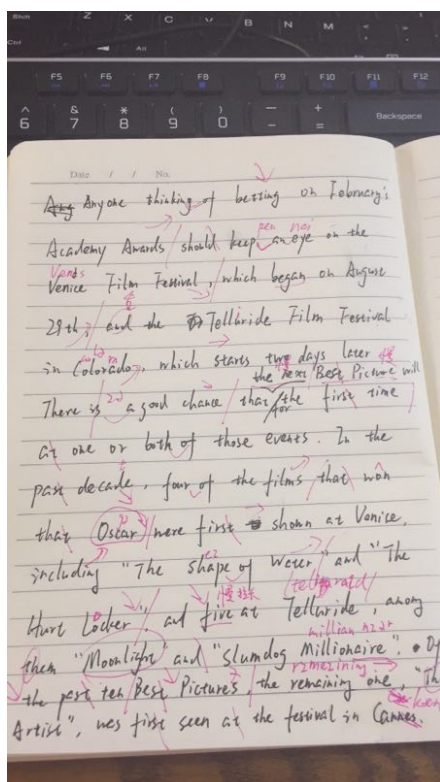 Shift Z X C V B N M
Ctrl Alt
F5 F6 F7 F8 F9 F10 F11 F12
^ & * ( ) — +
6 7 8 9 0 - = Backspace
Date / / No.
Anyone thinking of betting on February's
Academy Awards should keep an eye on the
Venice Film Festival, which began on August
29th, and the Telluride Film Festival
in Colorado, which starts two days later
the next Best Picture will
There is a good chance that for the first time
at one or both of those events. In the
past decade, four of the films that won
that Oscar were first shown at Venice,
including "The shape of Water" and "The
Hurt Locker", and five at Telluride, among
them "Moonlight" and "Slumdog Millionaire". Of
the past ten Best Pictures, the remaining one, "Th
Artist", was first seen at the festival in Cannes.